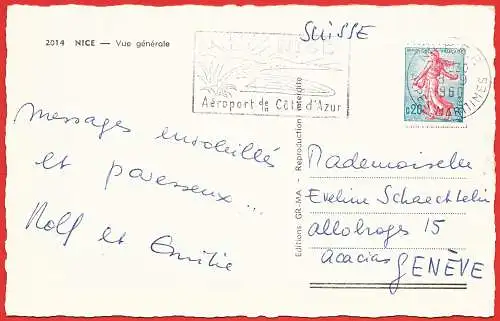 2014 NICE — Vue générale
SUISSE
NICE
Aéroport de la Côte d'Azur
0,20
1960
MARITIMES
messages ensoleillés
et paresseux...
Rolf et Emilie
Editions GR-MA - Reproduction interdite
Mademoiselle
Eveline Schaechtelin
Allobroges 15
Acacias
GENÈVE